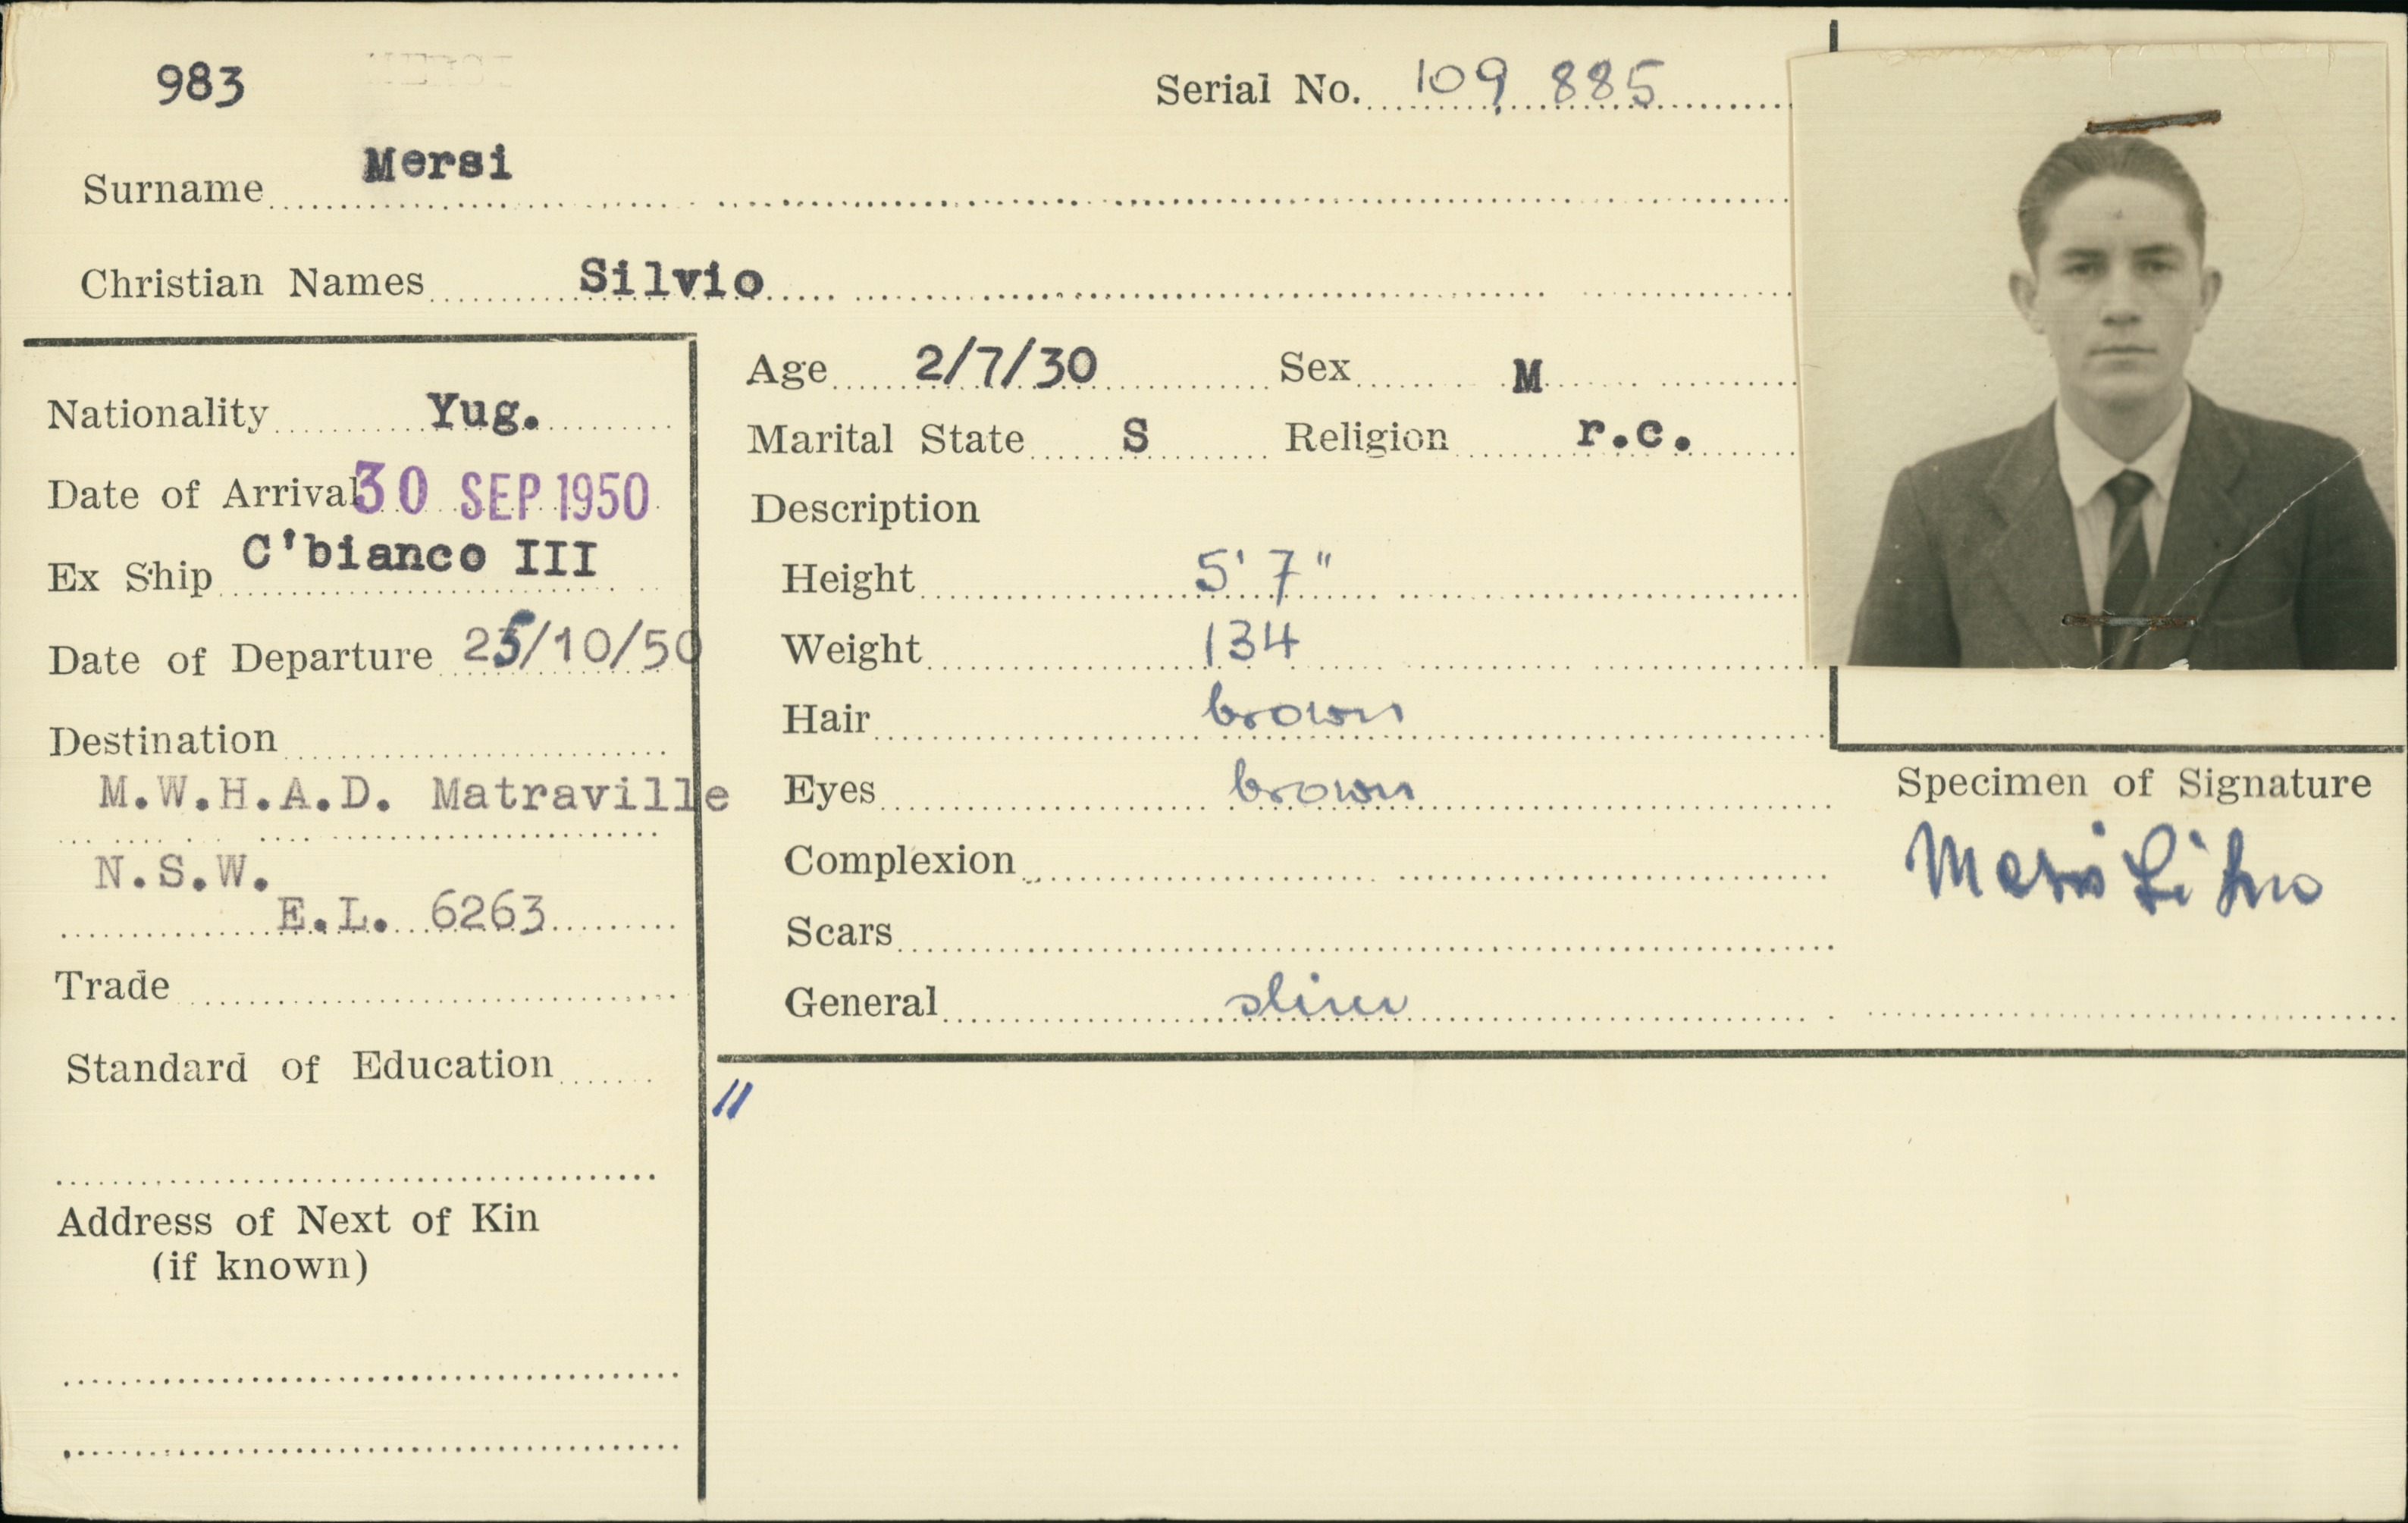 983
Serial No. 109 885
Surname Mersi
Christian Names Silvio
Nationality Yug.
Date of Arrival 30 SEP 1950
Ex Ship C'bianco III
Date of Departure 25/10/50
Destination
M.W.H.A.D. Matraville
N.S.W.
E.L. 6263
Trade
Standard of Education
Address of Next of Kin
(if known)
Age 2/7/30 Sex M
Marital State S Religion r.c.
Description
Height 5' 7"
Weight 134
Hair brown
Eyes brown
Complexion
Scars
General slim
Specimen of Signature
Mersi Silvio
"